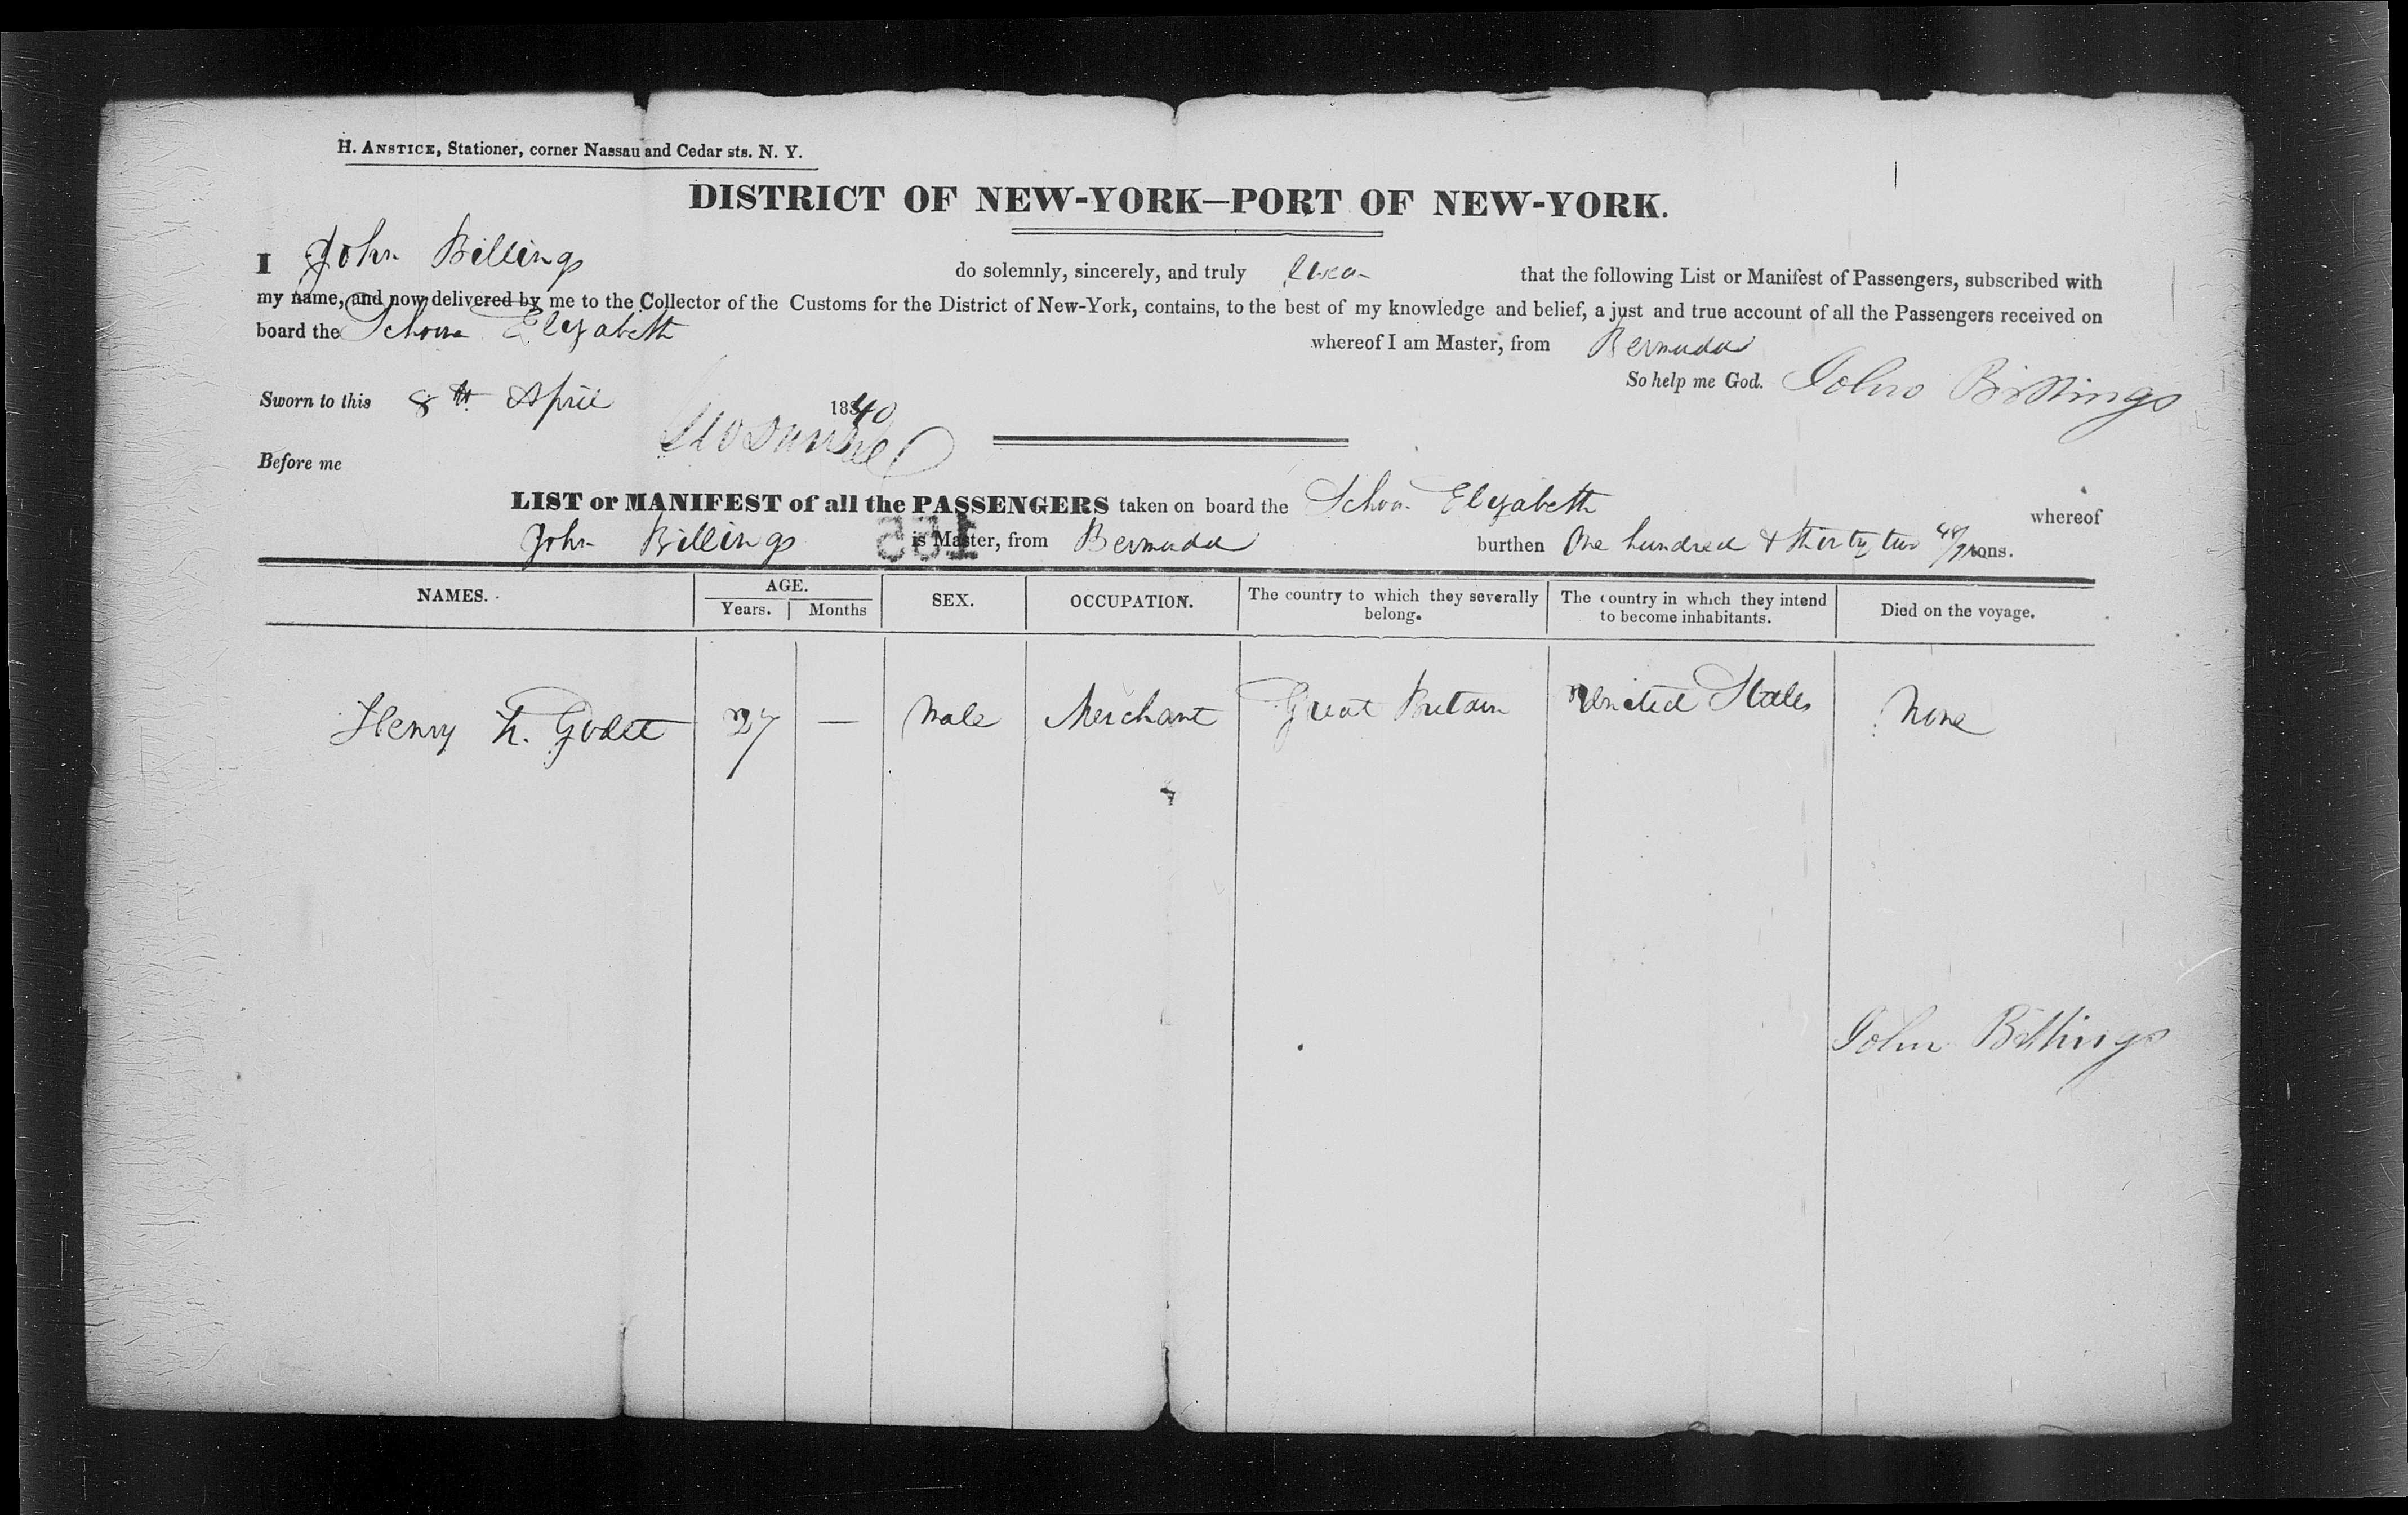 H. ANSTICE, Stationer, corner Nassau and Cedar sts. N. Y.
DISTRICT OF NEW-YORK—PORT OF NEW-YORK.
I John Billings do solemnly, sincerely, and truly Swear that the following List or Manifest of Passengers, subscribed with
my name, and now delivered by me to the Collector of the Customs for the District of New-York, contains, to the best of my knowledge and belief, a just and true account of all the Passengers received on
board the Schour Elizabeth whereof I am Master, from Bermuda
So help me God. John Billings
Sworn to this 8th April 1840
Before me
LIST or MANIFEST of all the PASSENGERS taken on board the Schou. Elizabeth whereof
John Billings is Master, from Bermuda burthen One hundred & thirty two 48/ tons.
NAMES. AGE. Years. Months SEX. OCCUPATION. The country to which they severally belong. The country in which they intend to become inhabitants. Died on the voyage.
Henry h. Godet 27 — Male Merchant Great Britain United States None
John Billings